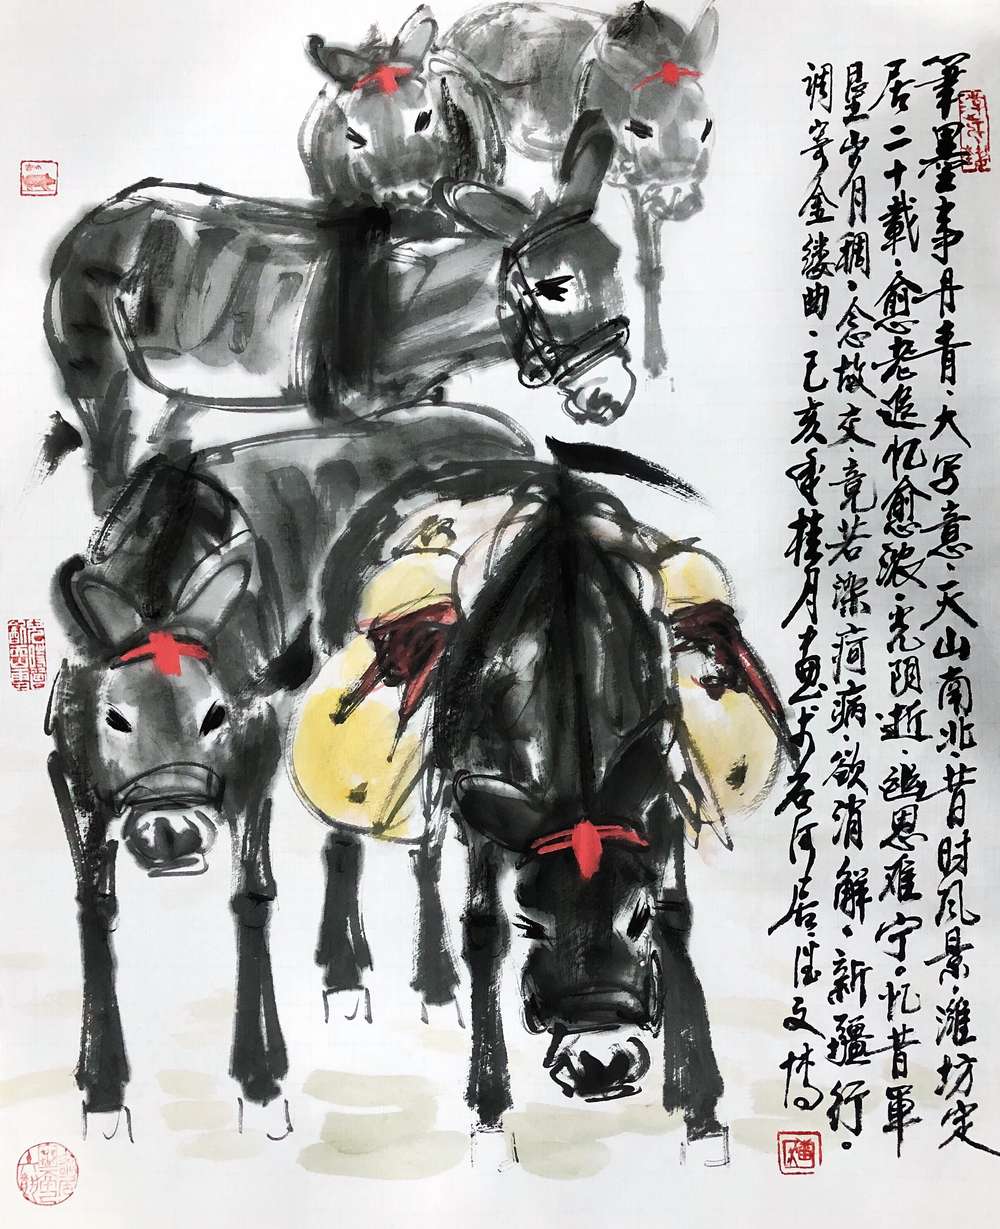 筆墨事丹青、大写意、天山南北、昔时风景、潍坊定
居二十載、愈老追忆愈浓、光阴逝、追思难宁。忆昔軍
垦岁月稠、念故交、竟若染疴病、欲消解、新疆行。
调寄金缕曲、己亥年桂月畫于